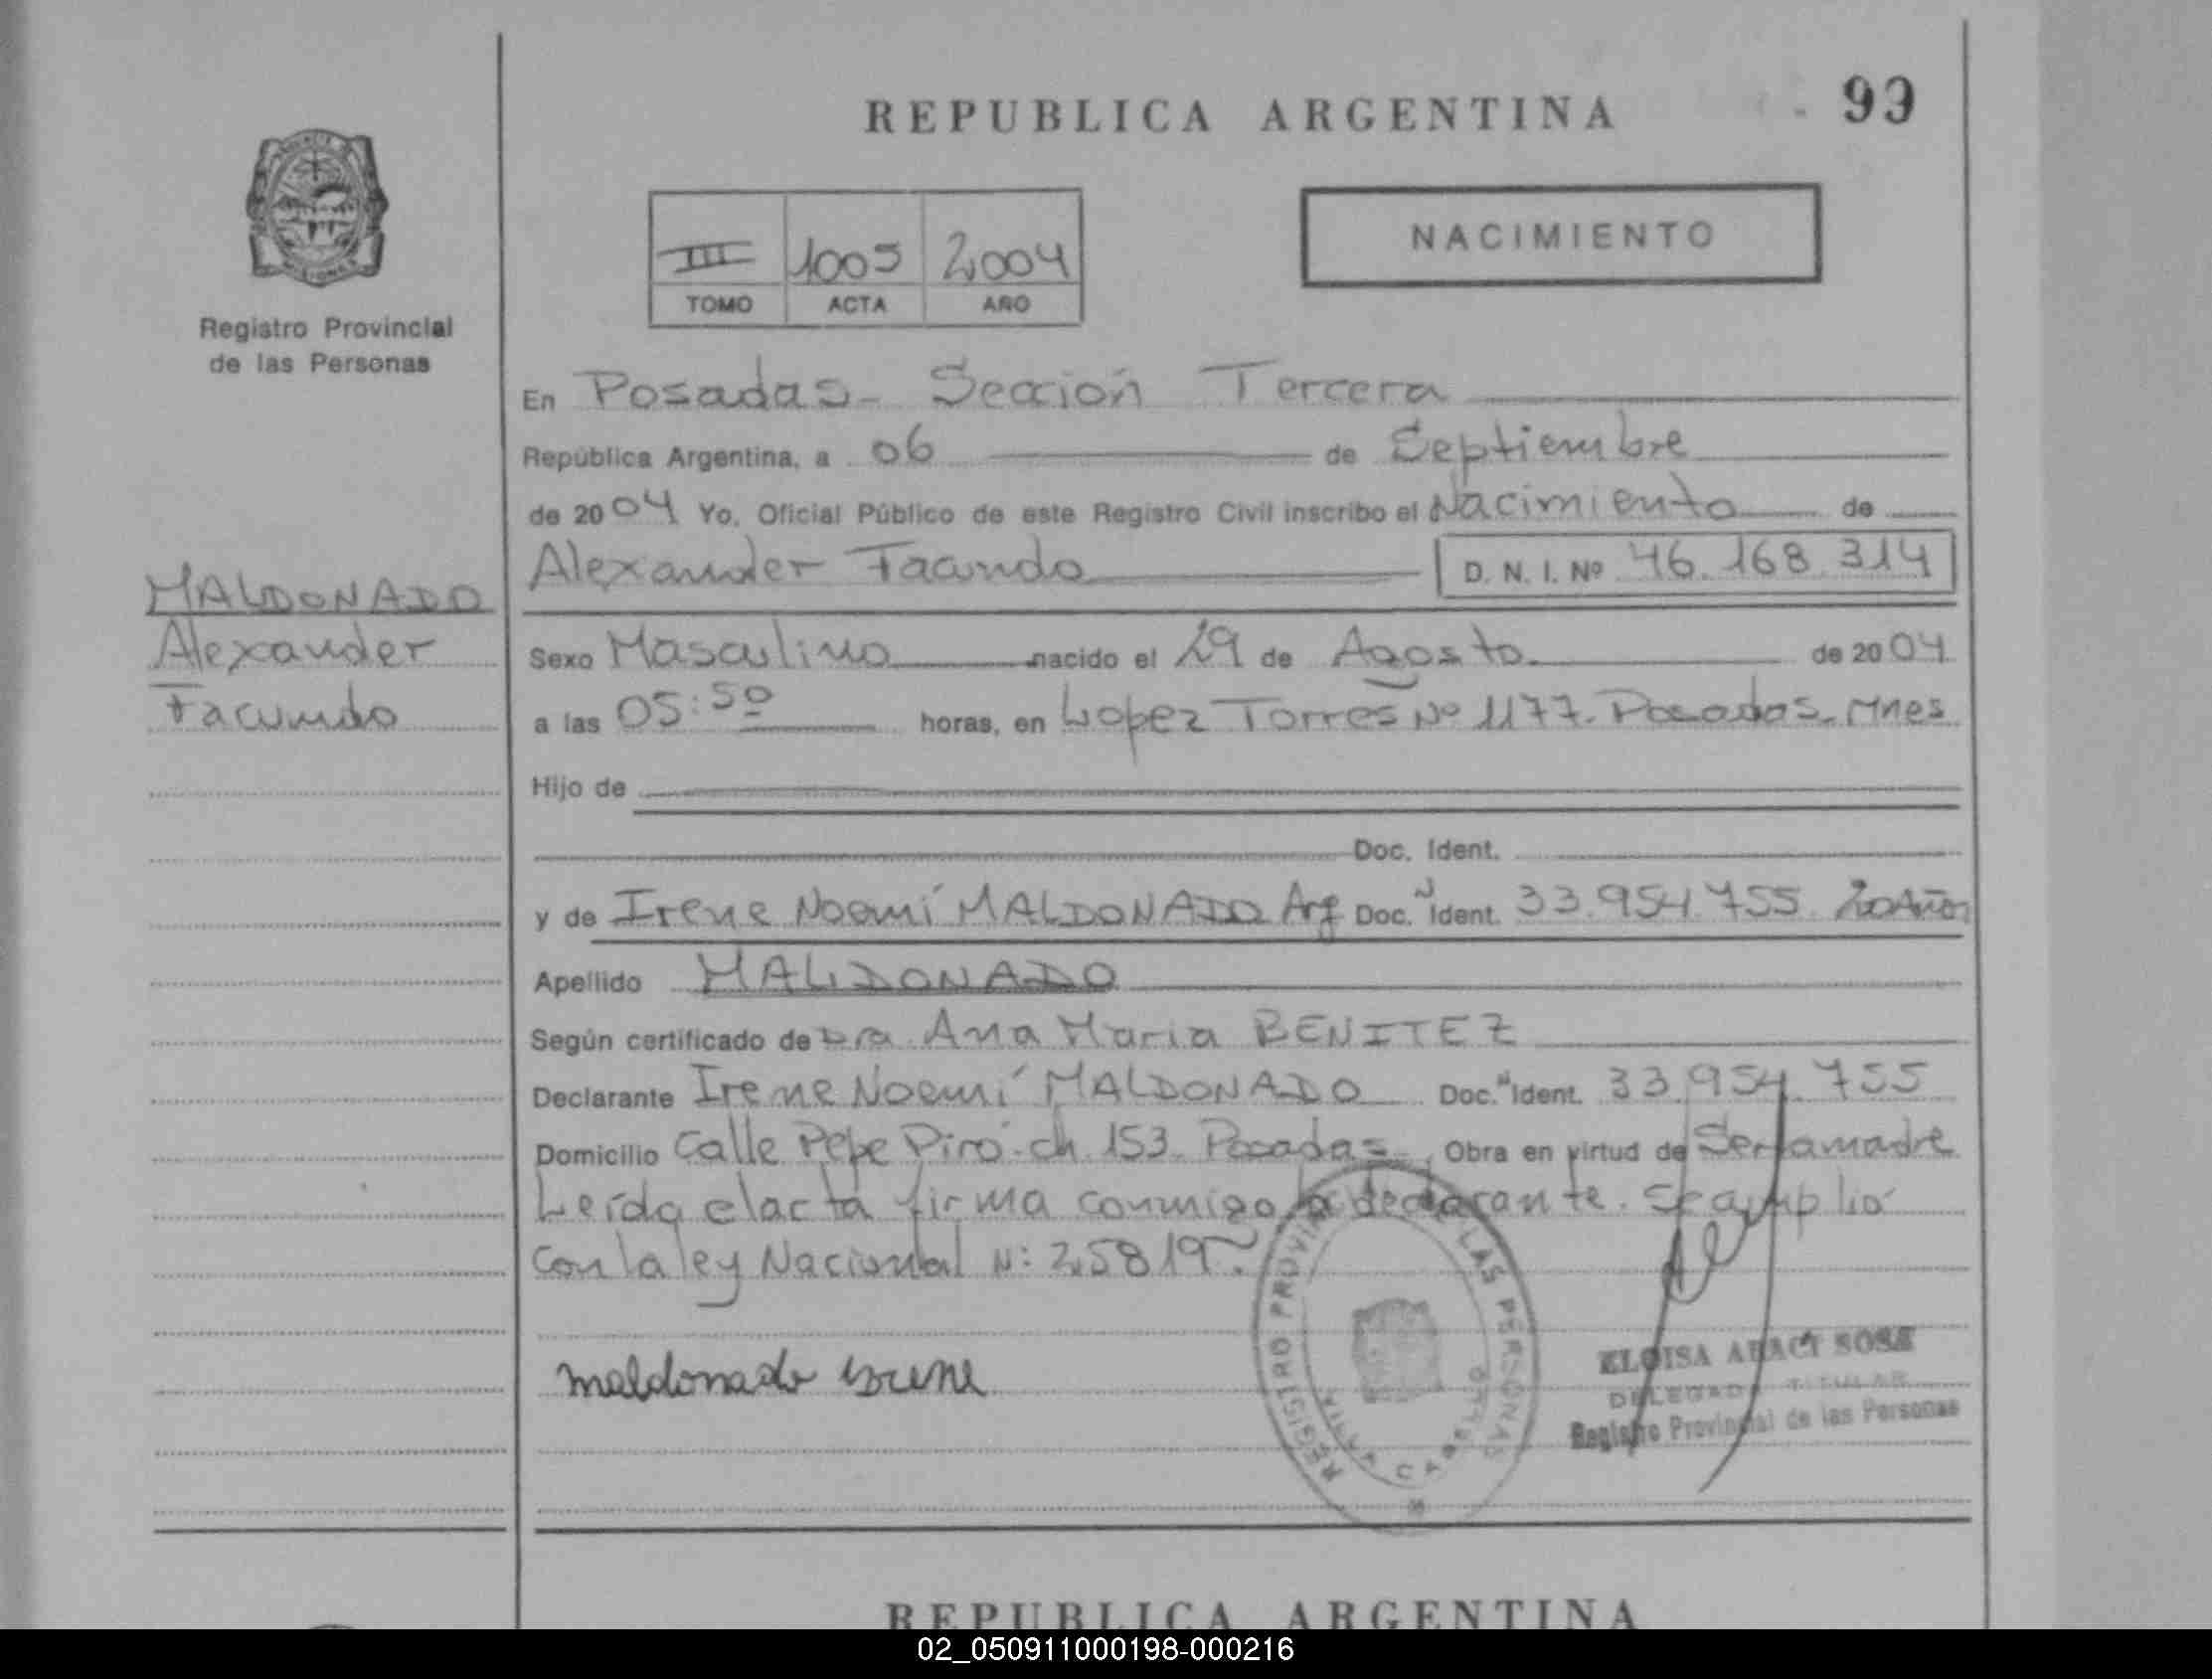 REPUBLICA ARGENTINA
99
Registro Provincial
de las Personas
III 1005 2004
TOMO ACTA AÑO
NACIMIENTO
En Posadas - Sección Tercera
República Argentina, a 06 de Septiembre
de 2004 Yo, Oficial Público de este Registro Civil inscribo el Nacimiento de
Alexander Facundo D. N. I. Nº 46.168.314
MALDONADO
Alexander
Facundo
Sexo Masculino nacido el 29 de Agosto de 2004
a las 05:50 horas, en Lopez Torres Nº 1177. Posadas. Mnes
Hijo de
Doc. Ident.
y de Irene Noemí MALDONADO Arg Doc. Ident. 33.954.755 20 Años
Apellido MALDONADO
Según certificado de Dra. Ana Maria BENITEZ
Declarante Irene Noemí MALDONADO Doc. Ident. 33.954.755
Domicilio Calle Pepe Piró. ch. 153. Posadas. Obra en virtud de Ser la madre
Leída el acta firma conmigo la declarante. Se amplió
con la ley Nacional N: 25819.
maldonado irene
REGISTRO PROVINCIAL LAS PERSONAS
ELOISA ARACI SOSA
DELEGADA TITULAR
Registro Provincial de las Personas
REPUBLICA ARGENTINA
02_050911000198-000216